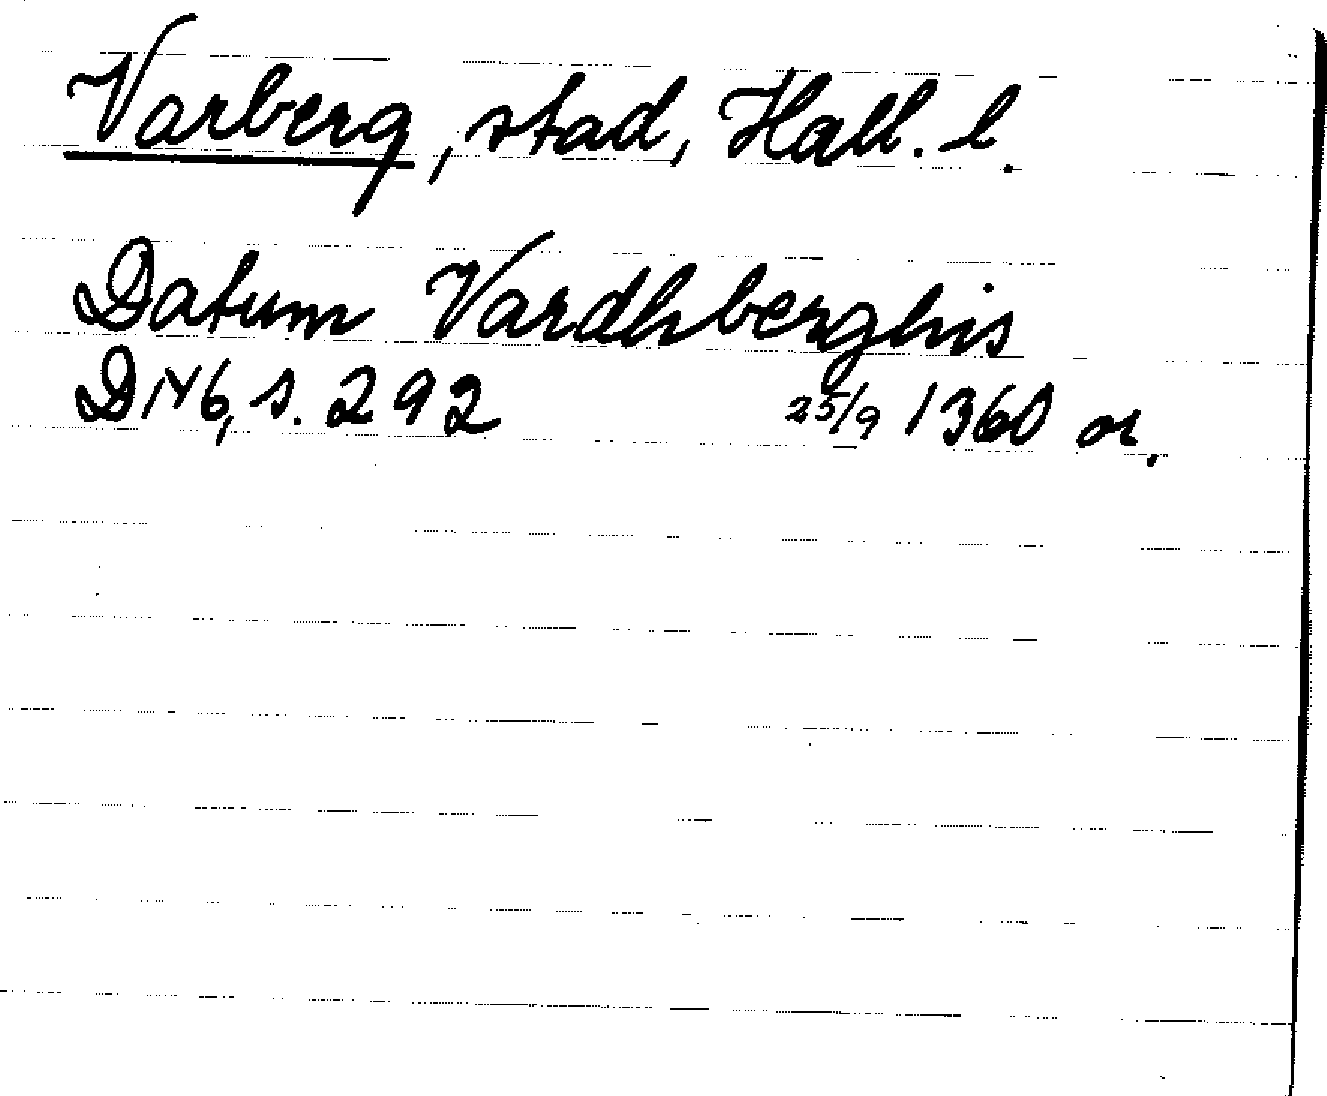 Varberg, stad, Hall. l.
Datum Vardhberghis
DN6, s. 292 25/9 1360 or.